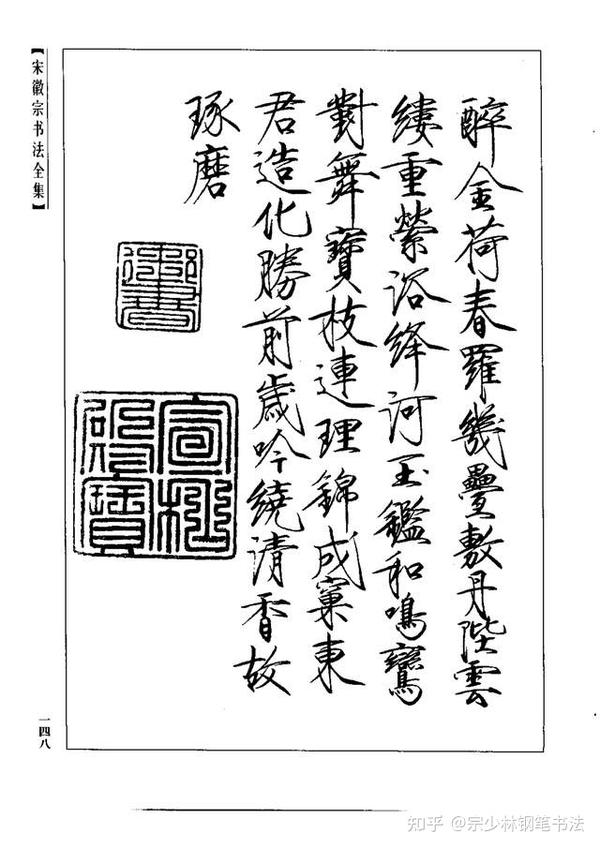 醉金荷春羅幾疊敷丹陛雲
縷重縈浴絳河玉鑑和鳴鸞
對舞寶枝連理錦成窠東
君造化勝前歲吟繞清香故
琢磨
御書
宣和殿寶
【宋徽宗书法全集】
一四八
知乎 @宗少林钢笔书法